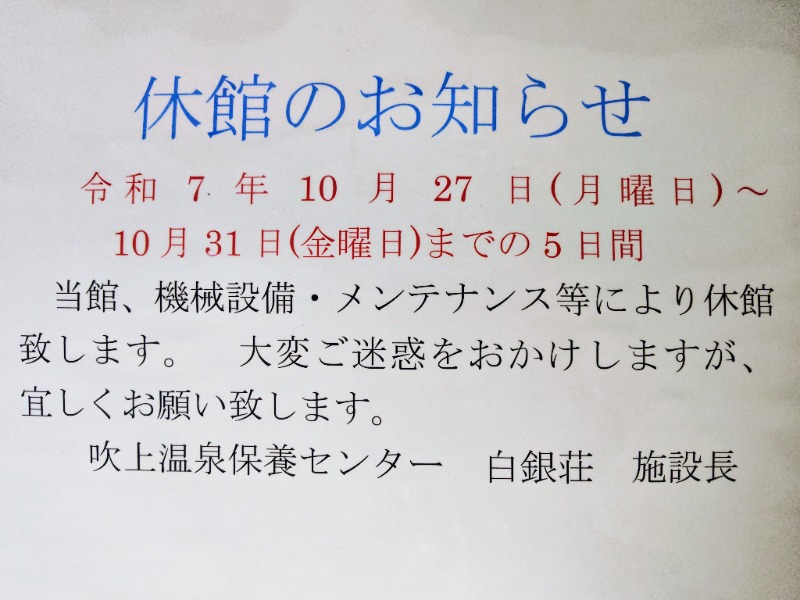 休館のお知らせ
令和 7 年 10 月 27 日(月曜日)～
10月31日(金曜日)までの5日間
当館、機械設備・メンテナンス等により休館
致します。　大変ご迷惑をおかけしますが、
宜しくお願い致します。
吹上温泉保養センター　白銀荘　施設長